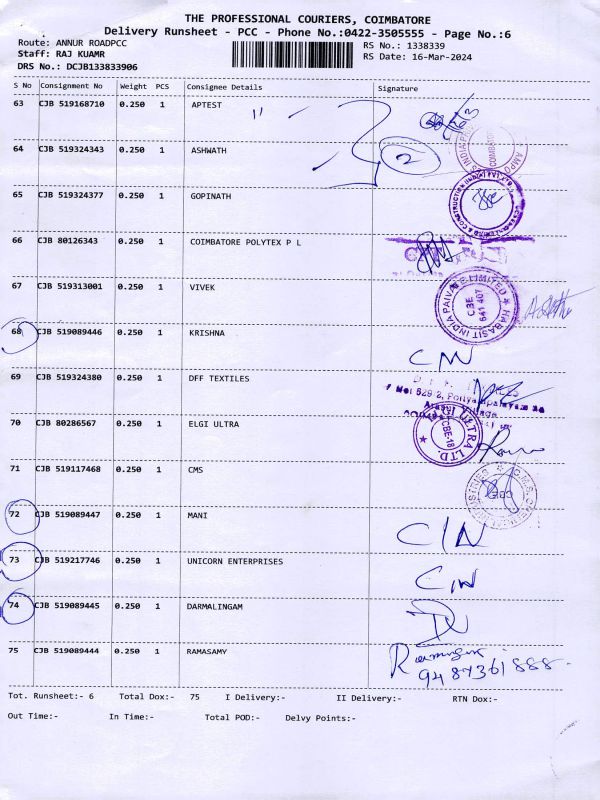 THE PROFESSIONAL COURIERS, COIMBATORE
Delivery Runsheet - PCC - Phone No.:0422-3505555 - Page No.:6
Route: ANNUR ROADPCC RS No.: 1338339
Staff: RAJ KUAMR RS Date: 16-Mar-2024
DRS No.: DCJB133833906
S No Consignment No Weight PCS Consignee Details Signature
63 CJB 519168710 0.250 1 APTEST
64 CJB 519324343 0.250 1 ASHWATH 2
65 CJB 519324377 0.250 1 GOPINATH
66 CJB 80126343 0.250 1 COIMBATORE POLYTEX P L
67 CJB 519313001 0.250 1 VIVEK HABASIT INDIA PAIVATE LIMITED CBE 641 407
68 CJB 519089446 0.250 1 KRISHNA
69 CJB 519324380 0.250 1 DFF TEXTILES
70 CJB 80286567 0.250 1 ELGI ULTRA ELGI ULTRA LTD. CBE-18
71 CJB 519117468 0.250 1 CMS
72 CJB 519089447 0.250 1 MANI C/N
73 CJB 519217746 0.250 1 UNICORN ENTERPRISES C/N
74 CJB 519089445 0.250 1 DARMALINGAM
75 CJB 519089444 0.250 1 RAMASAMY
9487361888
Tot. Runsheet:- 6 Total Dox:- 75 I Delivery:- II Delivery:- RTN Dox:-
Out Time:- In Time:- Total POD:- Delvy Points:-